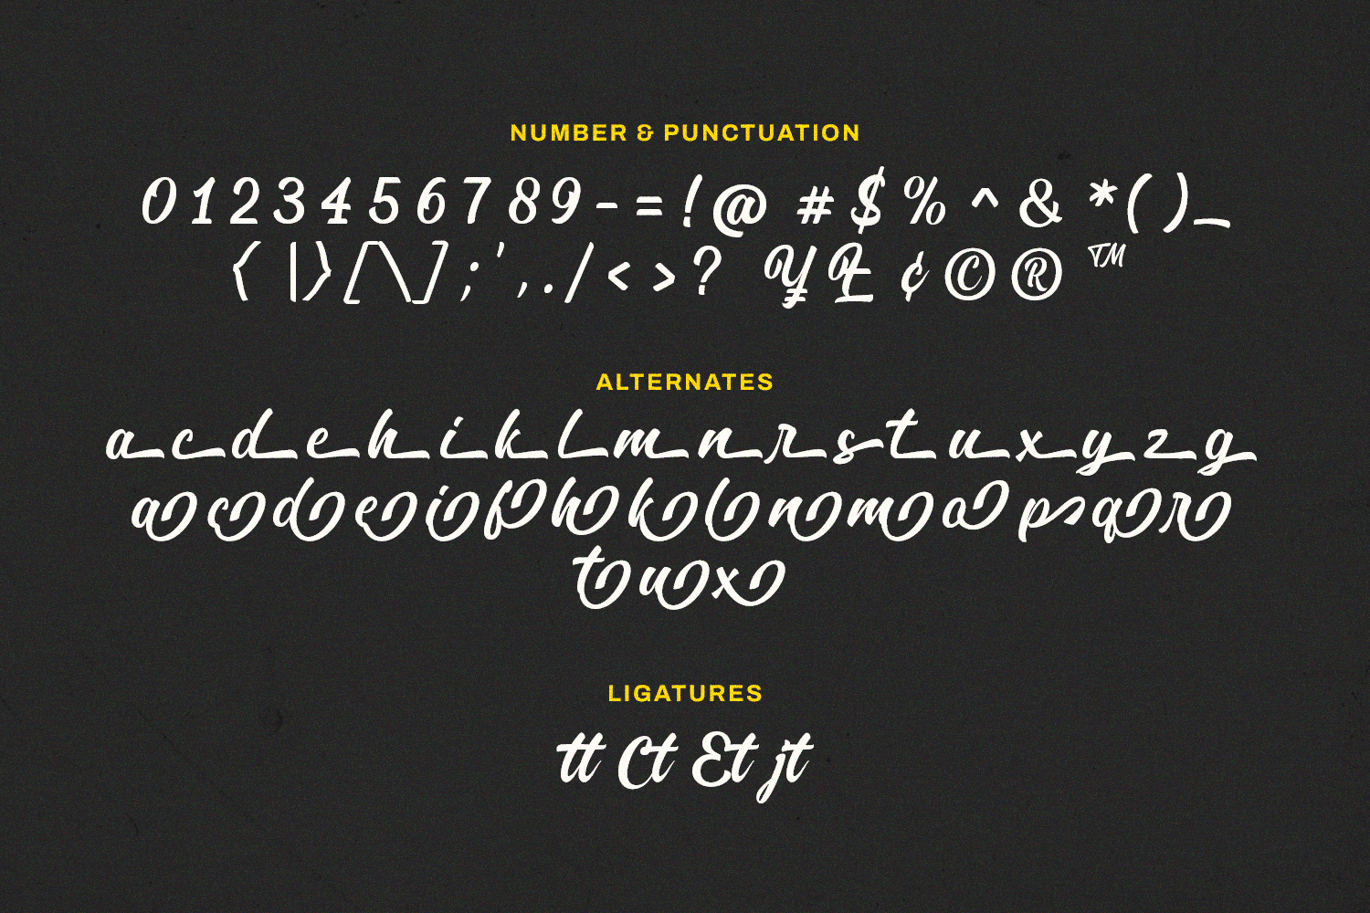 NUMBER & PUNCTUATION
0 1 2 3 4 5 6 7 8 9 - = ! @ # $ % ^ & * ( ) _
{ | } [ / \ ] ; ' , . / < > ? ¥ £ ¢ © ® ™
ALTERNATES
a c d e h i k l m n r s t u x y z g
a c d e i f h k l n m o p q r
t u x
LIGATURES
tt Ct Et jt